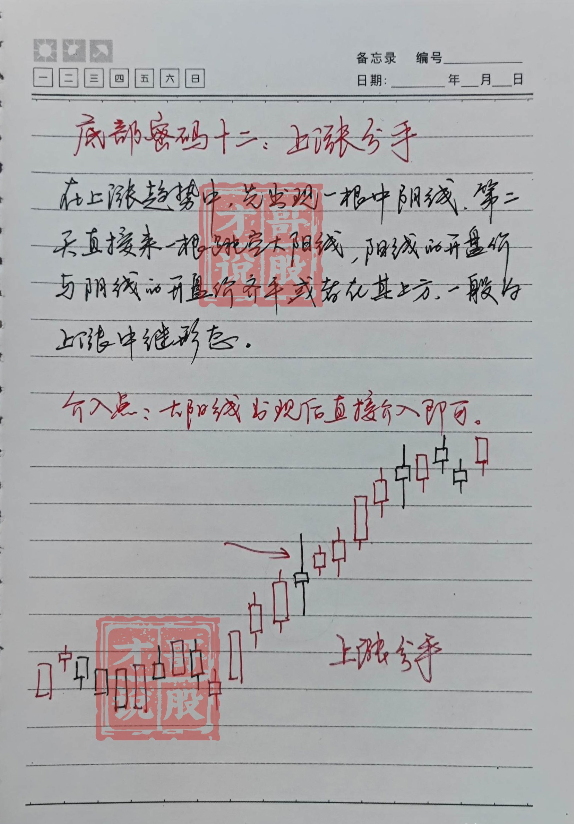 备忘录 编号
一 二 三 四 五 六 日 日期： 年 月 日
底部密码十二：上涨分手
在上涨趋势中，先出现一根中阴线，第二
天直接来一根跳空大阳线，阳线的开盘价
与阴线的开盘价齐平或者在其上方，一般为
上涨中继形态。
才哥说股
介入点：大阳线出现后直接介入即可。
上涨分手
才哥说股